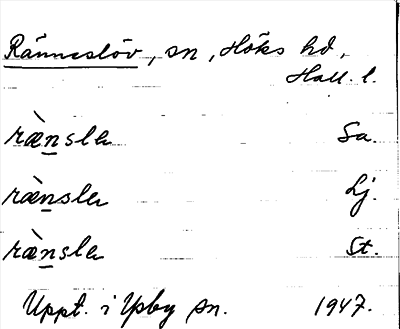 Ränneslöv, sn, Höks hd,
Hall. l.
ræ̀nslɐ Sa.
ræ̀nslɐ Lj.
ræ̀nslɐ St.
Uppt. i Ysby sn. 1947.